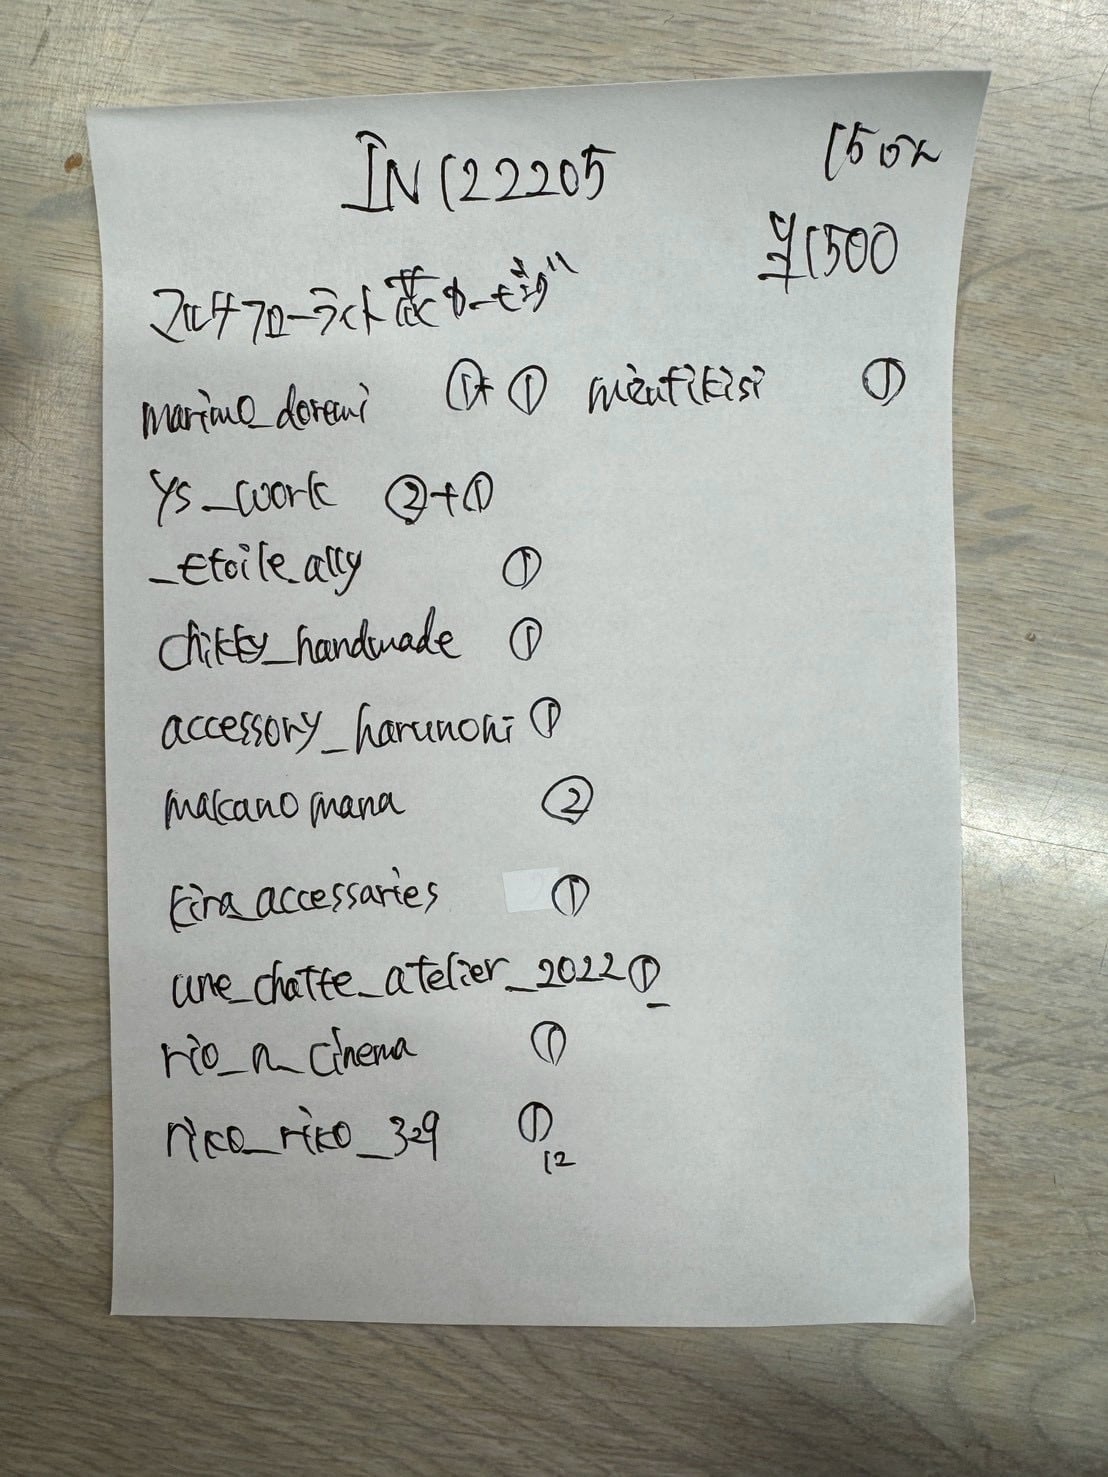 IN122205
150%
¥1500
マルチフローライト
marimo_doremi ①+① mieutikisi ①
ys_work ②+①
_etoile_ally ①
chikky_handmade ①
accessory_harunohi ①
makano mana ②
kira_accessaries ①
une_chatte_atelier_2022 ①
rio_n_cinema ①
riko_riko_329 ①
12